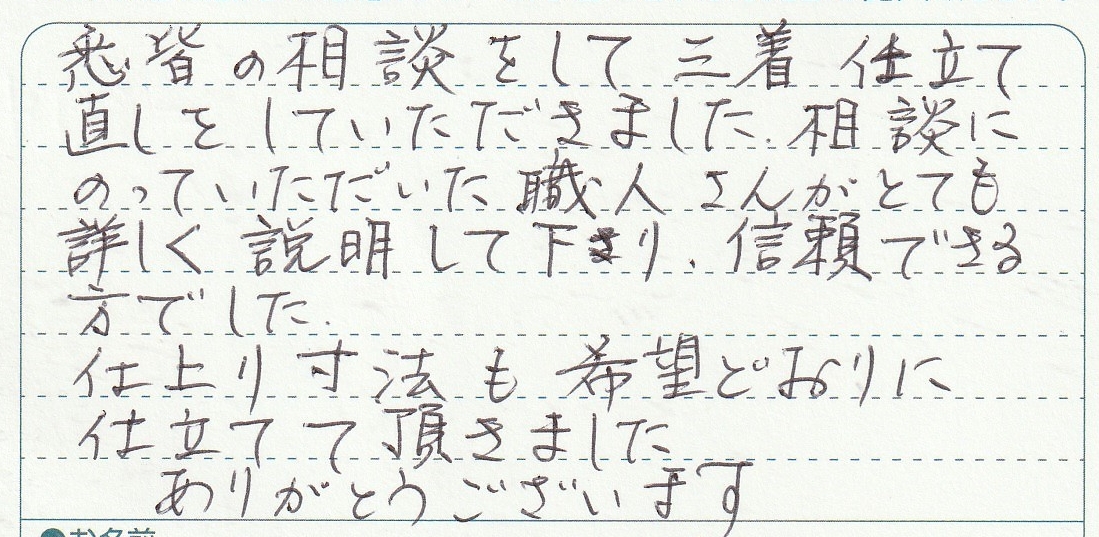 悉皆の相談をして三着仕立て
直しをしていただきました.相談に
のっていただいた職人さんがとても
詳しく説明して下さり、信頼できる
方でした.
仕上り寸法も希望どおりに
仕立てて頂きました
ありがとうございます
●お名前